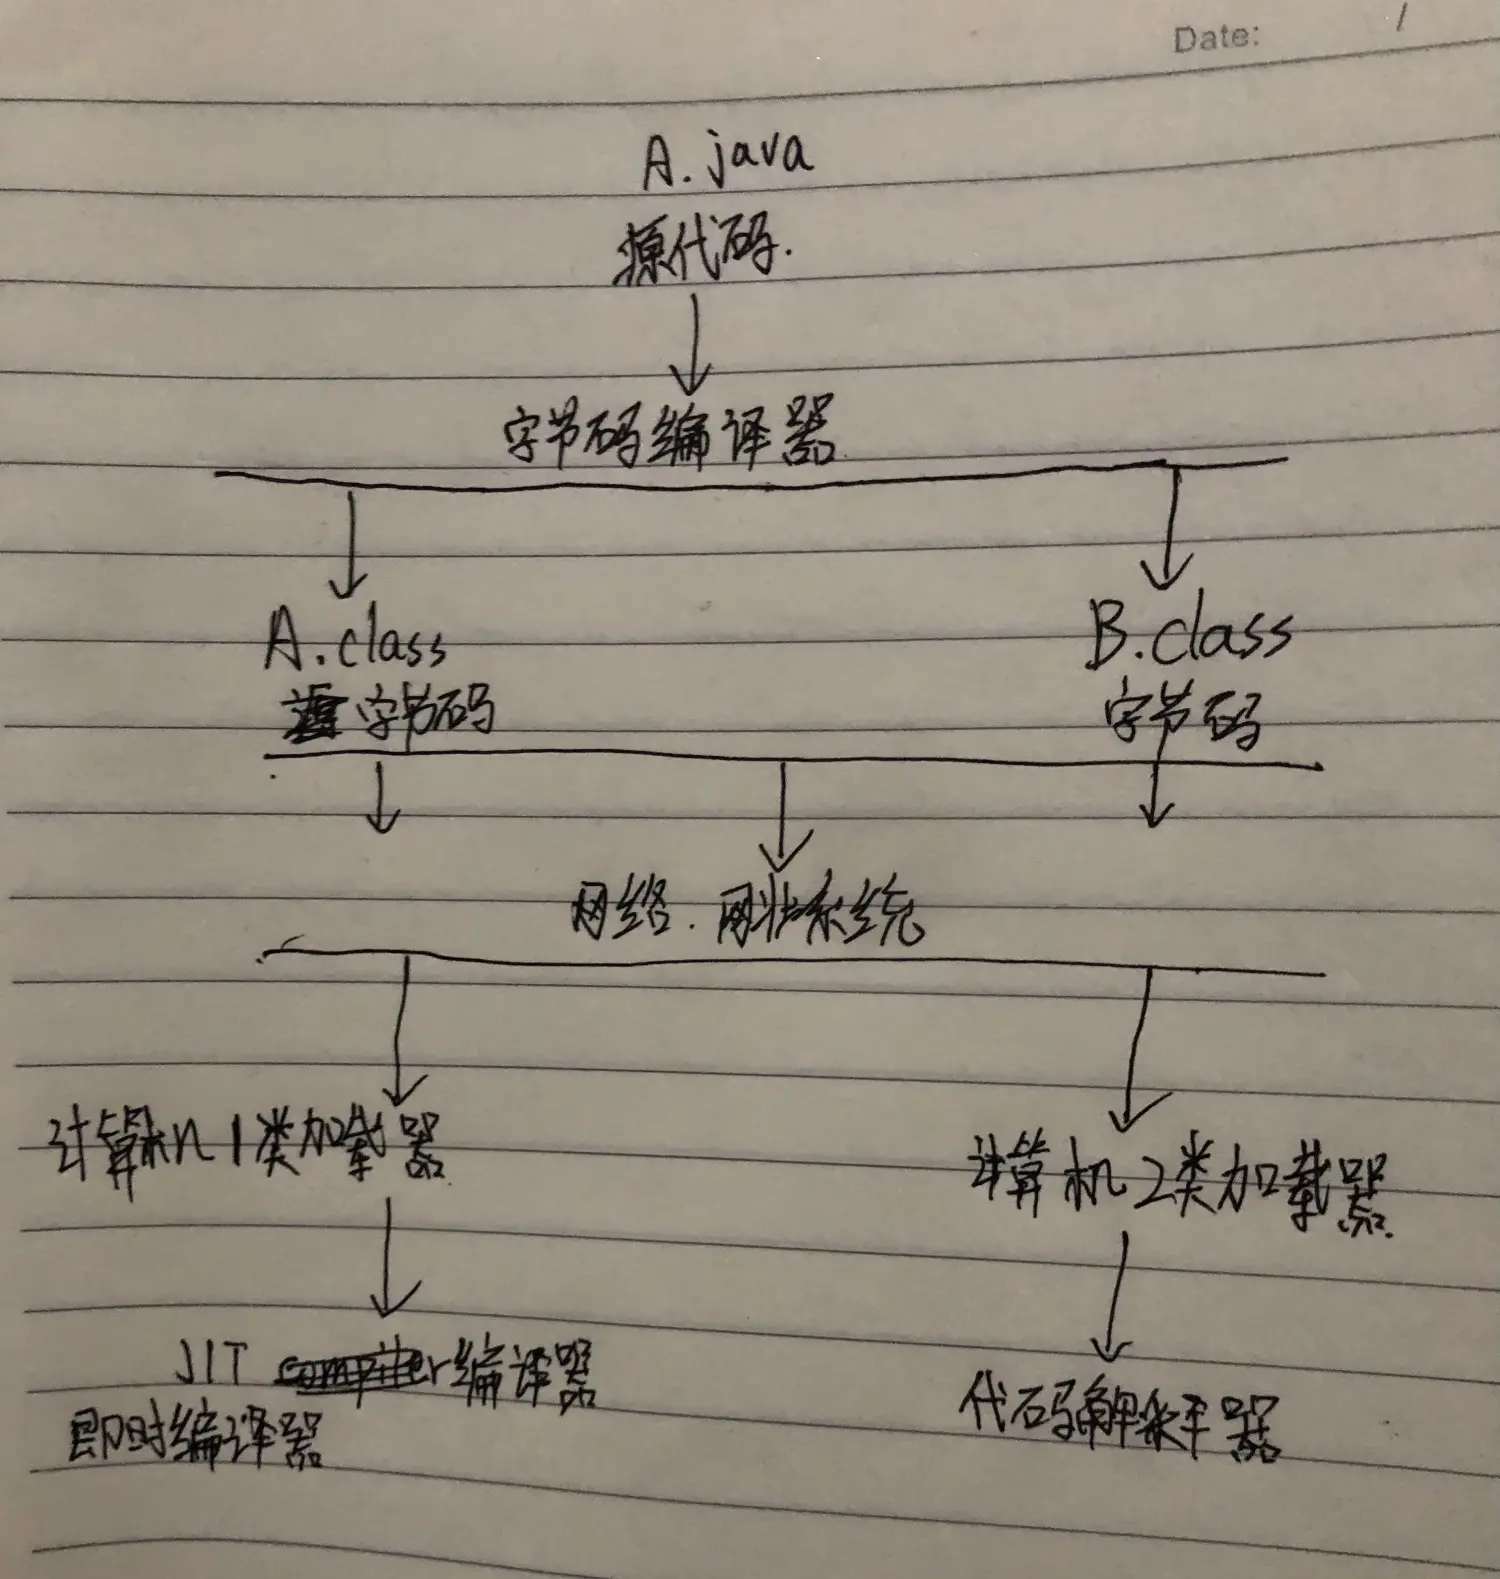 Date: /
A.java
源代码.
字节码编译器
A.class
B.class
字节码
字节码
网络. 系统
计算机1类加载器
计算机2类加载器
JIT 编译器
代码解释器
即时编译器